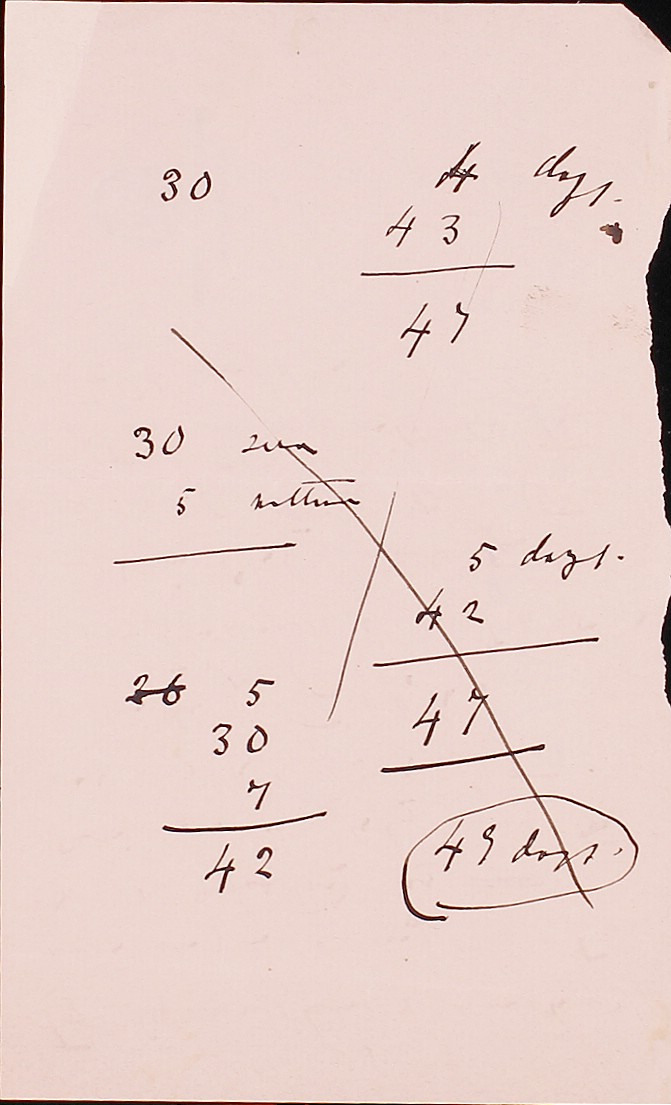 30
4 days.
43
47
30
5
5 days.
42
47
26 5
30
7
42
49 days.